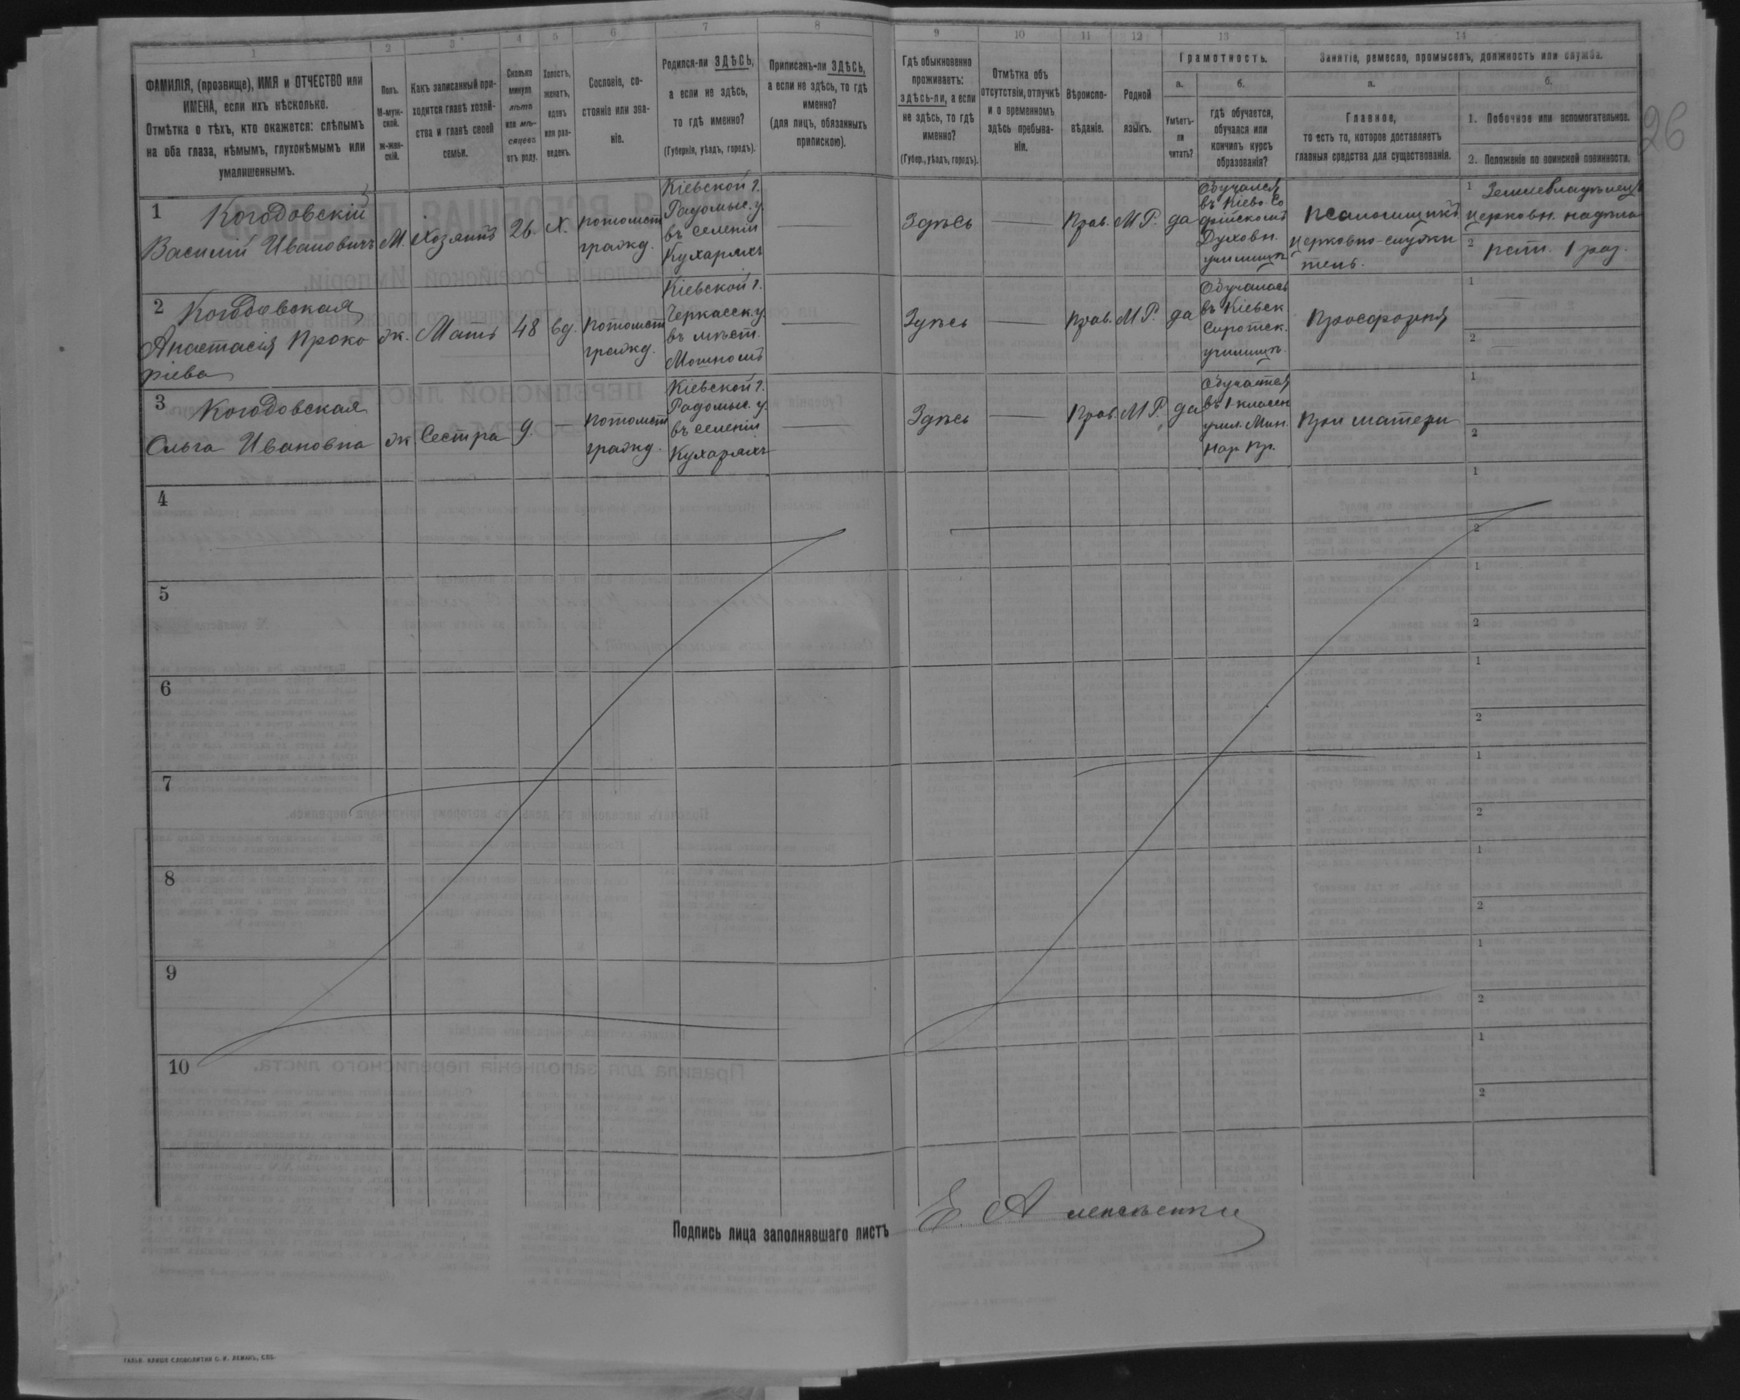 1 2 3 4 5 6 7 8 9 10 11 12 13 14
ФАМИЛІЯ, (прозвище), ИМЯ и ОТЧЕСТВО или
ИМЕНА, если ихъ нѣсколько.
Отмѣтка о тѣхъ, кто окажется: слѣпымъ
на оба глаза, нѣмымъ, глухонѣмымъ или
умалишеннымъ.
Полъ.
М-муж-
ской.
Ж-жен-
скій.
Какъ записанный при-
ходится главѣ хозяй-
ства и главѣ своей
семьи.
Сколько
минуло
лѣтъ
или мѣ-
сяцевъ
отъ роду.
Холостъ,
женатъ,
вдовъ
или раз-
веденъ.
Сословіе, со-
стояніе или зва-
ніе.
Родился-ли ЗДѢСЬ,
а если не здѣсь,
то гдѣ именно?
(Губернія, уѣздъ, городъ).
Приписанъ-ли ЗДѢСЬ,
а если не здѣсь, то гдѣ
именно?
(для лицъ, обязанныхъ
припискою).
Гдѣ обыкновенно
проживаетъ:
здѣсь-ли, а если
не здѣсь, то гдѣ
именно?
(Губер., уѣздъ, городъ).
Отмѣтка объ
отсутствіи, отлучкѣ
и о временномъ
здѣсь пребыва-
ніи.
Вѣроиспо-
вѣданіе.
Родной
языкъ.
Грамотность.
а.
Умѣетъ-
ли
читать?
б.
гдѣ обучается,
обучался или
кончилъ курсъ
образованія?
Занятіе, ремесло, промыселъ, должность или служба.
а.
Главное,
то есть то, которое доставляетъ
главныя средства для существованія.
б.
1. Побочное или вспомогательное.
2. Положеніе по воинской повинности.
26
1 Когодовскій
Василій Ивановичъ
М.
Хозяинъ
26.
Х.
потомст
гражд.
Кіевской г.
Радомыс. у.
въ селеніи
Кухаряхъ
Здѣсь
Прав.
М Р.
да
Обучался
въ Кіево-Со
фійскомъ
Духовн.
училищѣ
Псаломщикъ
церковно-служи
тель.
1 Землевладѣлецъ
церковн. надѣла
2 рат. 1 раз.
2 Когодовская
Анастасія Проко
фіева
ж.
Мать
48
вд.
потомст
гражд.
Кіевской г.
Черкасск. у.
въ мѣст.
Мошномъ
Здѣсь
Прав.
М Р.
да
Обучалась
въ Кіевск
Сиротск.
училищѣ.
Просфорня
1
2
3 Когодовская
Ольга Ивановна
ж
Сестра
9
потомст
гражд.
Кіевской г.
Радомыс. у.
въ селеніи
Кухаряхъ
Здѣсь
Прав.
М Р.
да
Обучается
въ 1 классн
учил. Мин.
Нар. Пр.
При матери
1
2
4
1
2
5
1
2
6
1
2
7
1
2
8
1
2
9
1
2
10
1
2
Подпись лица заполнявшаго листъ